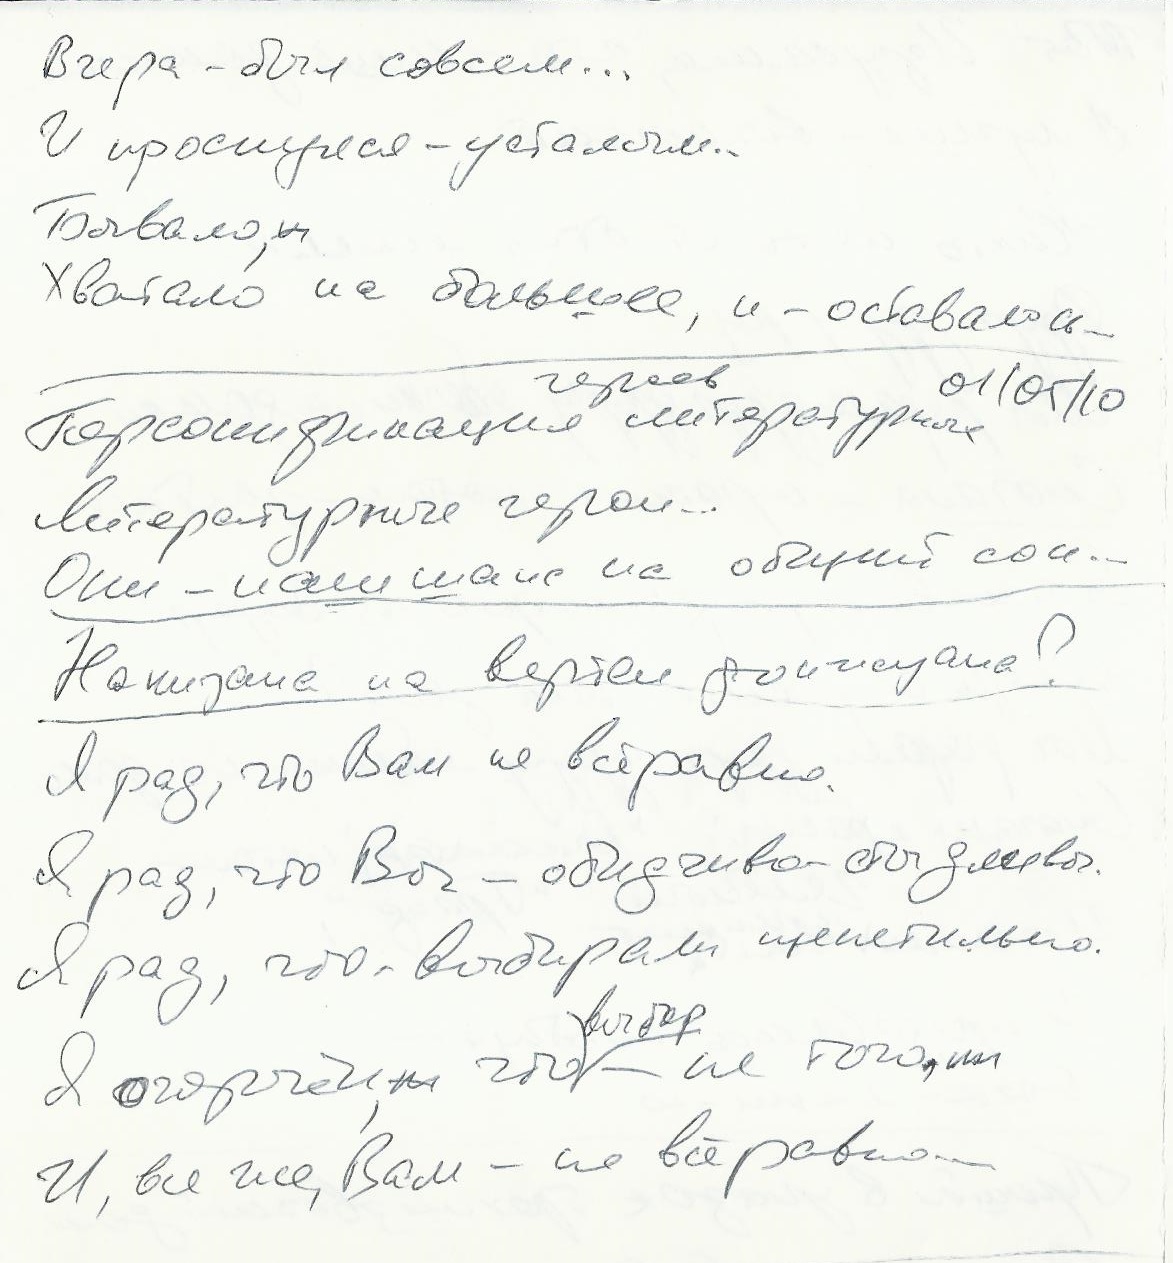 Вчера - был совсем...
И проснулся - усталым..
Бывало,
Хватало на большее, и - оставалось..
героев 01/05/10
Персонификация литературных
Литературные герои...
Они - наш шанс на общий сон...
Нанизана на вертел донжуана?
Я рад, что Вам не всё равно.
Я рад, что Вы - обидчиво-стыдливы.
Я рад, что - выбирали щепетильно.
выбор
Я огорчён, что - не того,
И, все же, Вам - не всё равно...